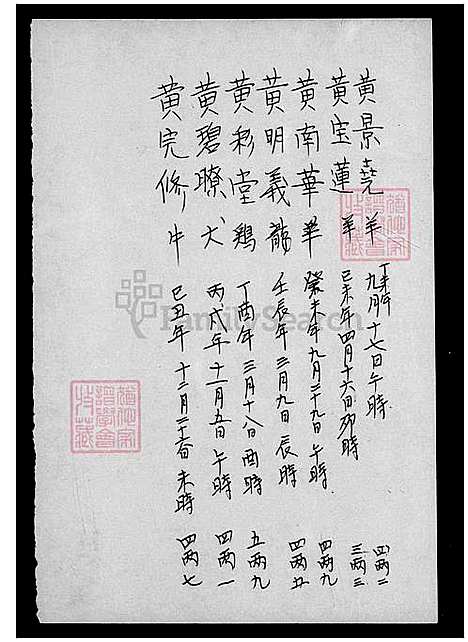 黄景堯 羊 丁未年九月十七日午時 四両二
黄宝蓮 羊 己未年四月十六日卯時 三両三
黄南華 羊 癸未年九月二十九日午時 四両九
黄明義 龍 壬辰年三月九日辰時 四両五
黄彩堂 鷄 丁酉年三月十八日酉時 五両九
黄碧瞭 犬 丙戌年十一月五日午時 四両一
黄完修 牛 己丑年十二月二十六日未時 四両七
FamilySearch